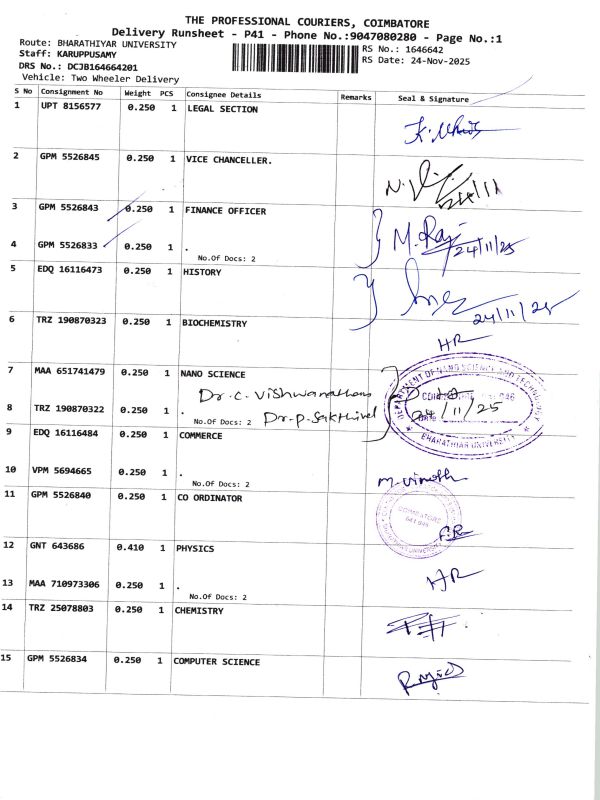 THE PROFESSIONAL COURIERS, COIMBATORE
Delivery Runsheet - P41 - Phone No.:9047080280 - Page No.:1
Route: BHARATHIYAR UNIVERSITY
RS No.: 1646642
Staff: KARUPPUSAMY
RS Date: 24-Nov-2025
DRS No.: DCJB164664201
Vehicle: Two Wheeler Delivery
S No Consignment No Weight PCS Consignee Details Remarks Seal & Signature
1 UPT 8156577 0.250 1 LEGAL SECTION
2 GPM 5526845 0.250 1 VICE CHANCELLER.
24/11
3 GPM 5526843 0.250 1 FINANCE OFFICER
M. Raj
24/11/25
4 GPM 5526833 0.250 1 .
No.Of Docs: 2
5 EDQ 16116473 0.250 1 HISTORY
24/11/25
6 TRZ 190870323 0.250 1 BIOCHEMISTRY
HR
7 MAA 651741479 0.250 1 NANO SCIENCE
DEPARTMENT OF NANO SCIENCE AND TECHNOLOGY
BHARATHIAR UNIVERSITY
Dr. C. Vishwanathan
24/11/25
8 TRZ 190870322 0.250 1 .
No.Of Docs: 2
Dr. P. Sakthivel
9 EDQ 16116484 0.250 1 COMMERCE
M. Vinoth
10 VPM 5694665 0.250 1 .
No.Of Docs: 2
11 GPM 5526840 0.250 1 CO ORDINATOR
COIMBATORE
641 046
12 GNT 643686 0.410 1 PHYSICS
HR
13 MAA 710973306 0.250 1 .
No.Of Docs: 2
14 TRZ 25078803 0.250 1 CHEMISTRY
15 GPM 5526834 0.250 1 COMPUTER SCIENCE